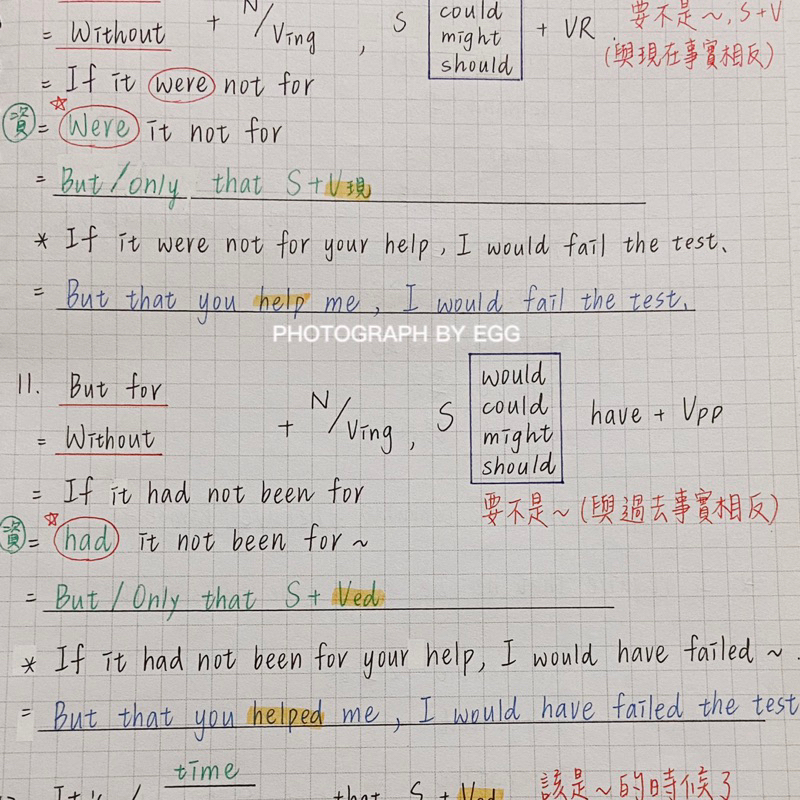 = Without + N/Ving , S could might should + VR . 要不是~, S+V
= If it were not for (與現在事實相反)
資 = Were it not for
= But / only that S+V現
* If it were not for your help, I would fail the test.
= But that you help me, I would fail the test.
PHOTOGRAPH BY EGG
11. But for
= Without + N/Ving , S would could might should have + Vpp
= If it had not been for 要不是~ (與過去事實相反)
資 = had it not been for ~
= But / Only that S + Ved
* If it had not been for your help, I would have failed ~ .
= But that you helped me, I would have failed the test
time
It's / that S + Ved 該是~的時候了